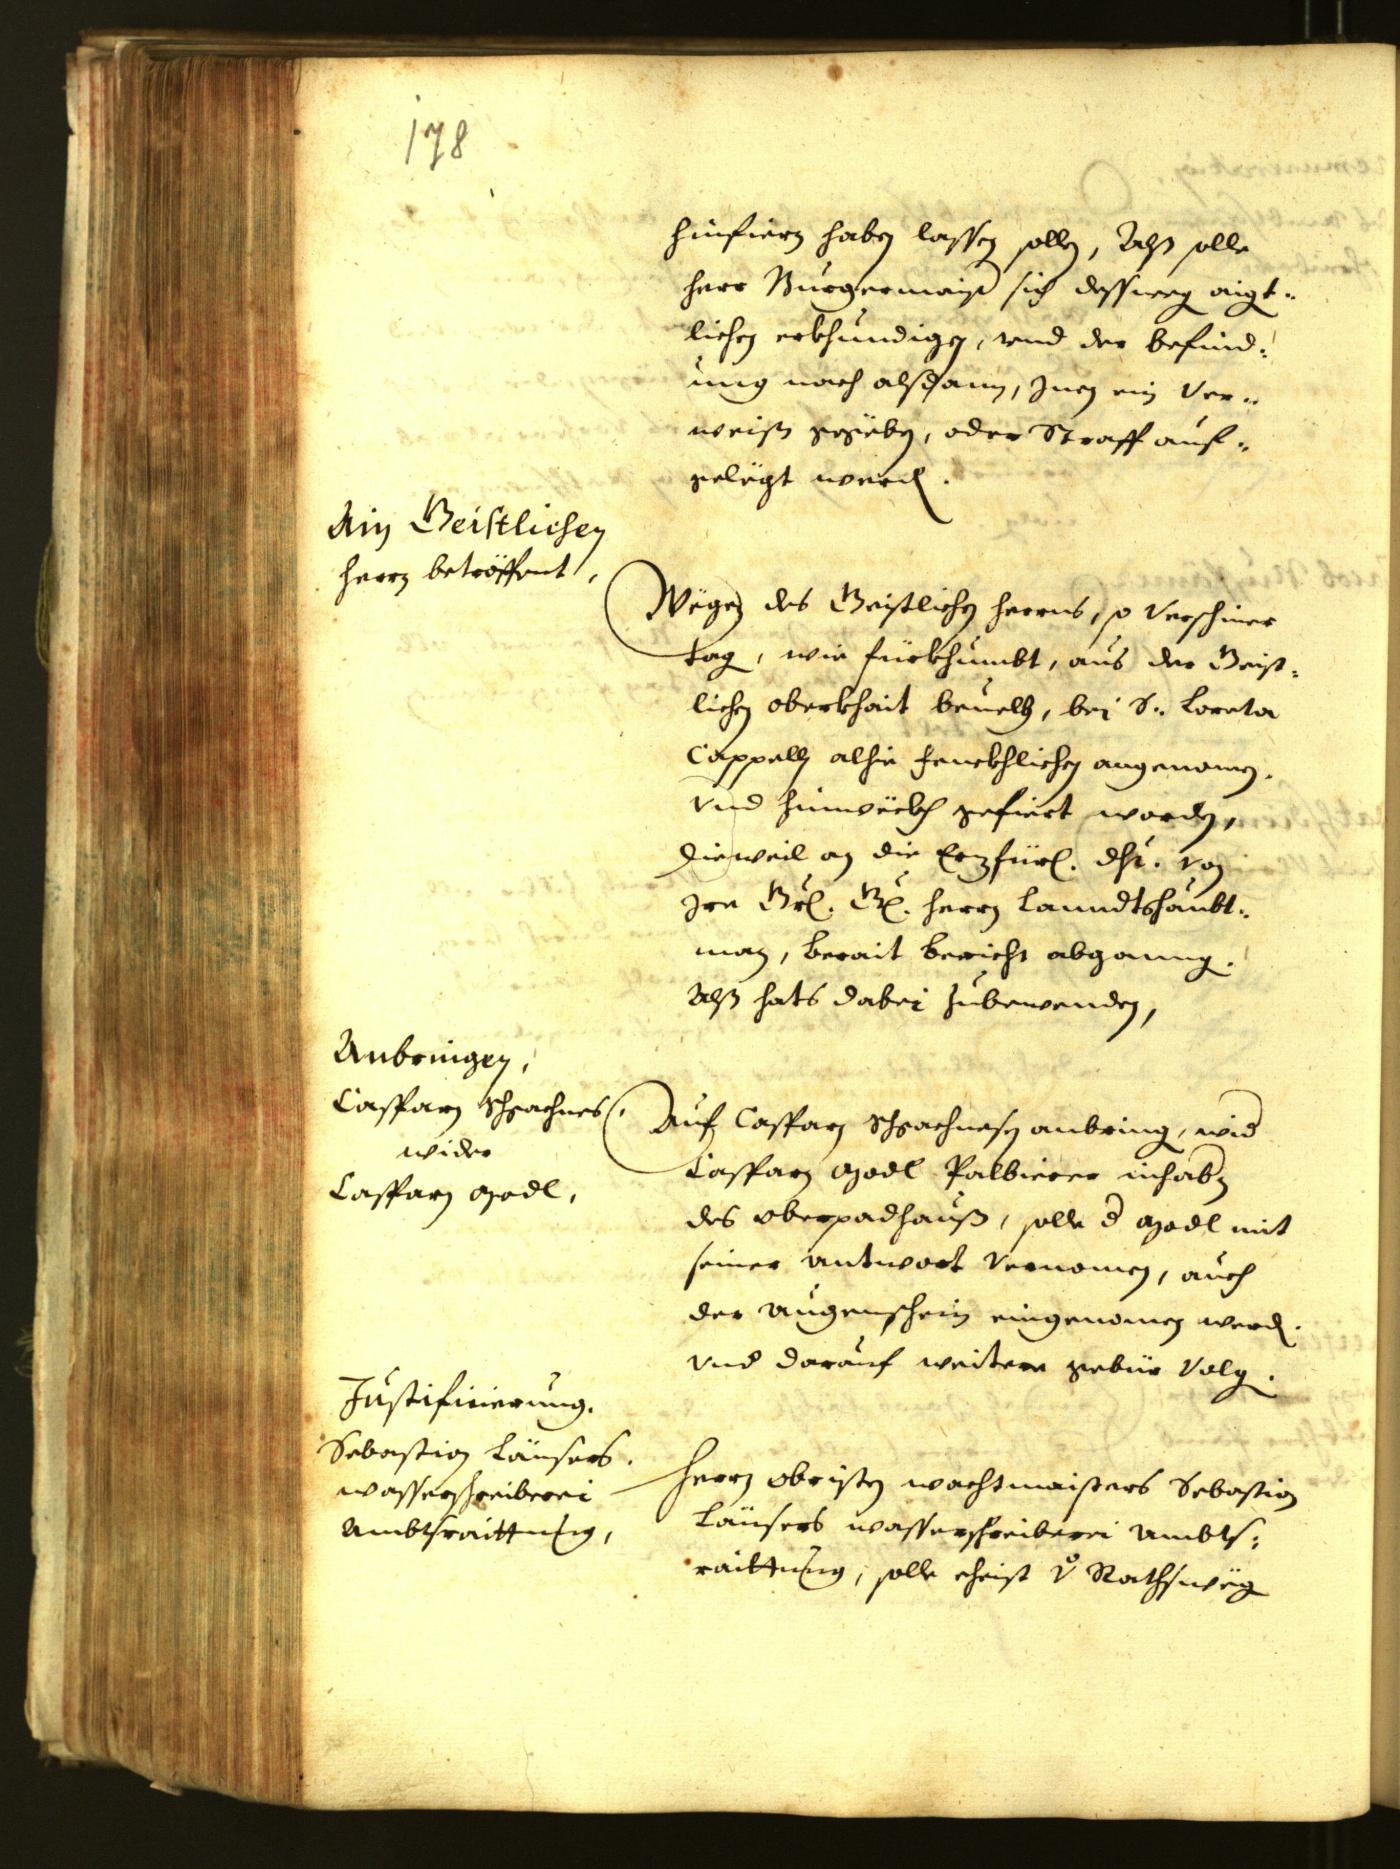 178
hinfiern haben lassen sollen, Alß solle
herr Burgermaister sich dessweg aigt-
lichen erkhundigen, vnd der befind-
ung nach alßdann, Jnen ein Ver-
weiß gegeben, oder Straff auf-
gelegt werden.
Ain Geistlichen
herrn betröffent,
Wegen des Geistlichen herrns, so verschiner
tag, wie fürkhumbt, aus der Geist-
lichen oberkhait beuelch, bei S. Loreta
Cappelln alhie fencklichen angenomen,
vnd hinweckh gefiert worden,
Dieweil an die Erzfürl. dht. von
Jre Grl. Gn. herrn Lanndtshaubt-
man, berait bericht abganng.
Alß hats dabei zubewenden,
Anbringen,
Casparn Schrachnes
wider
Casparn Modl,
Auf Casparn Schrachnesen anbring, wider
Casparn Modl Palbierer inhaber
des oberpadhauß, solle d Modl mit
seiner antwort vernomen, auch
der augenschein eingenomen werden.
vnd darauf weitere gebür volg.
Justificierung.
Sebastion Läusers
wasserschreiberei
Ambtsraittung,
Herrn obristen wachtmaisters Sebastion
Läusers wasserschreiberei Ambts-
raittung, solle ehist v Rathsweg